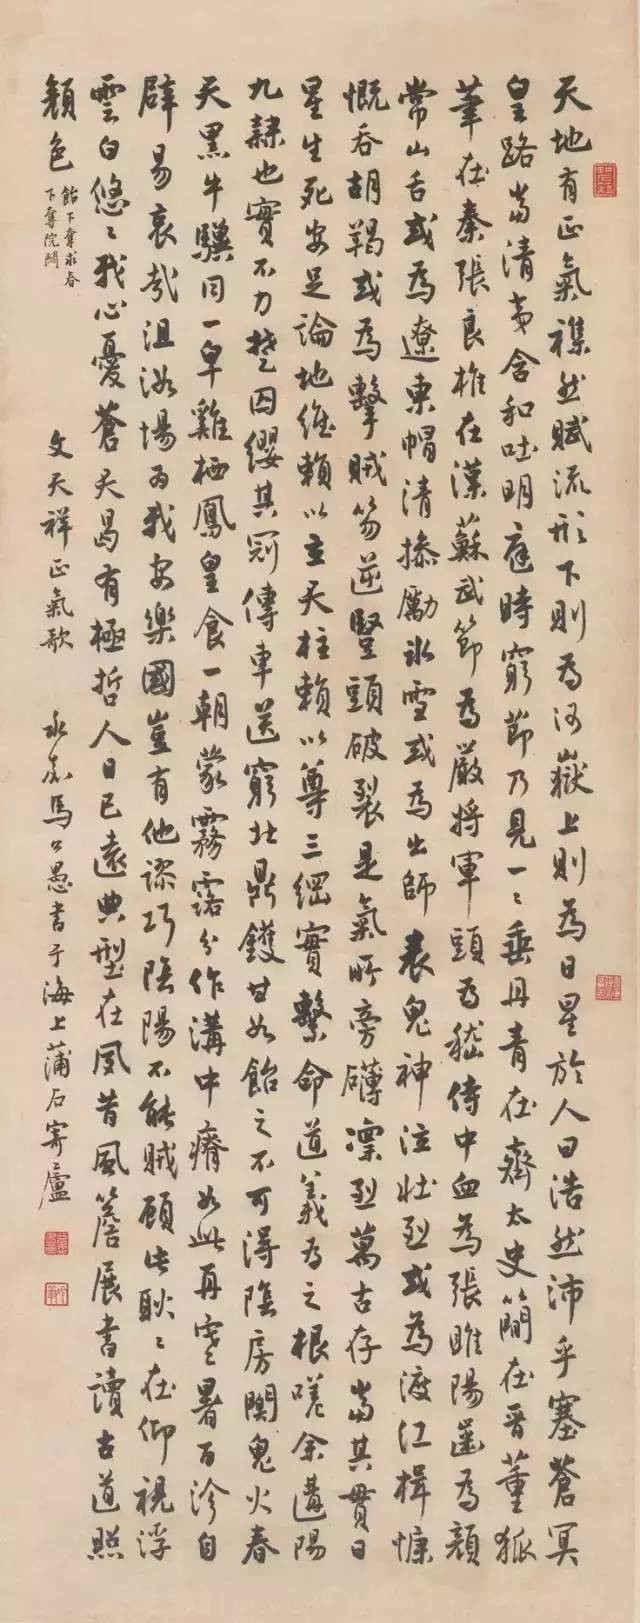 天地有正氣襍然賦流形下則為河嶽上則為日星於人曰浩然沛乎塞蒼冥
皇路當清夷含和吐明庭時窮節乃見一〻垂丹青在齊太史簡在晋董狐
筆在秦張良椎在漢蘇武節為嚴將軍頭為嵇侍中血為張睢陽齒為顔
常山舌或為遼東帽清操勵冰雪或為出師表鬼神泣壯烈或為渡江楫慷
慨吞胡羯或為擊賊笏逆豎頭破裂是氣所旁礴凛烈萬古存當其貫日
星生死安足論地維賴以立天柱賴以尊三綱實繫命道義為之根嗟余遘陽
九隸也實不力楚囚纓其冠傳車送窮北鼎鑊甘如飴之不可得陰房闃鬼火春
天黑牛驥同一皁雞栖鳳皇食一朝蒙霧露分作溝中瘠如此再寒暑百沴自
辟易哀哉沮洳場為我安樂國豈有他謬巧陰陽不能賊顧此耿〻在仰視浮
雲白悠〻我心憂蒼天曷有極哲人日已遠典型在夙昔風簷展書讀古道照
顔色
飴下奪求春
下奪院閟
文天祥正氣歌
永嘉馬公愚書于海上蒲石寄廬